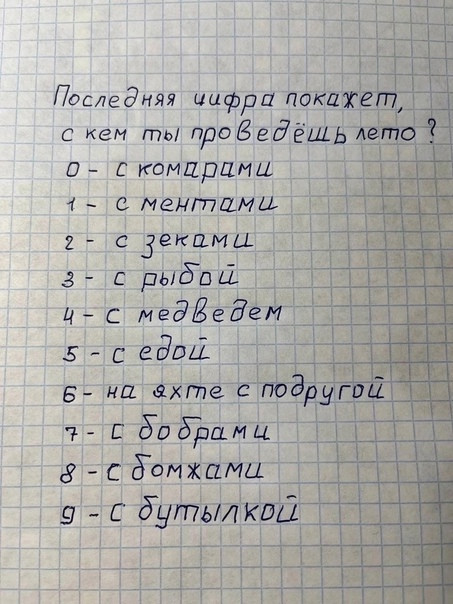 Последняя цифра покажет,
с кем ты проведёшь лето?
0 - с комарами
1 - с ментами
2 - с зеками
3 - с рыбой
4 - с медведем
5 - с едой
6 - на яхте с подругой
7 - с бобрами
8 - с бомжами
9 - с бутылкой